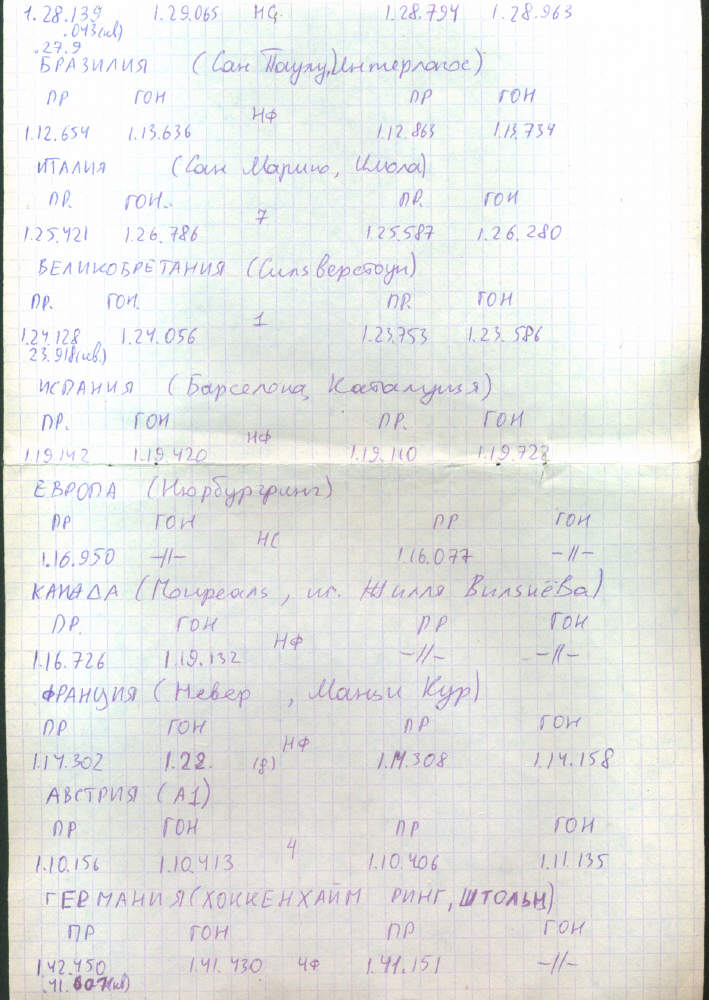 1.28.139 1.29.065 НФ 1.28.794 1.28.963
.043(кв)
.27.9
БРАЗИЛИЯ (Сан Паулу, Интерлагос)
ПР ГОН ПР ГОН
НФ
1.12.654 1.13.636 1.12.863 1.13.734
ИТАЛИЯ (Сан Марино, Имола)
ПР. ГОН. ПР. ГОН
7
1.25.421 1.26.786 1.25.587 1.26.280
ВЕЛИКОБРЕТАНИЯ (Сильверстоун)
ПР. ГОН. ПР. ГОН
1
1.24.128 1.24.056 1.23.753 1.23.586
23.918(кв.)
ИСПАНИЯ (Барселона, Каталуния)
ПР. ГОН ПР. ГОН
НФ
1.19.142 1.19.420 1.19.110 1.19.728
ЕВРОПА (Нюрбургринг)
ПР ГОН ПР ГОН
НС
1.16.950 –//– 1.16.077 –//–
КАНАДА (Монреаль, им. Жилля Вильнёва)
ПР. ГОН ПР ГОН
НФ
1.16.726 1.19.132 –//– –//–
ФРАНЦИЯ (Невер, Маньи Кур)
ПР ГОН ПР ГОН
НФ
1.14.302 1.22. (g) 1.14.308 1.14.158
АВСТРИЯ (А1)
ПР ГОН ПР ГОН
4
1.10.156 1.10.413 1.10.406 1.11.135
ГЕРМАНИЯ (ХОККЕНХАЙМ РИНГ, ШТОЛЬН)
ПР ГОН ПР ГОН
1.42.450 1.41.430 НФ 1.41.151 –//–
.41.607(кв)